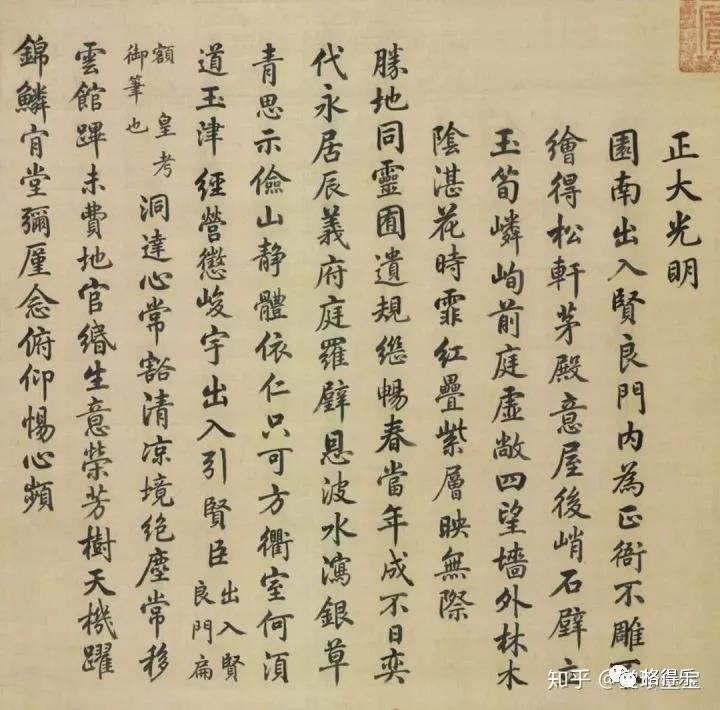 正大光明
園南出入賢良門內為正衙不雕不
繪得松軒茅殿意屋後峭石壁立
玉筍嶙峋前庭虛敞四望墻外林木
陰湛花時霏紅疊紫層映無際
勝地同靈囿遺規繼暢春當年成不日奕
代永居辰義府庭羅璧恩波水瀉銀草
青思示儉山静體依仁只可方衢室何須
道玉津經營懲峻宇出入引賢臣出入賢良門扁
額皇考御筆也洞達心常豁清凉境絕塵常移
雲館蹕未費地官緡生意榮芳樹天機躍
錦鱗肯堂彌厪念俯仰惕心頻
知乎
格得乐